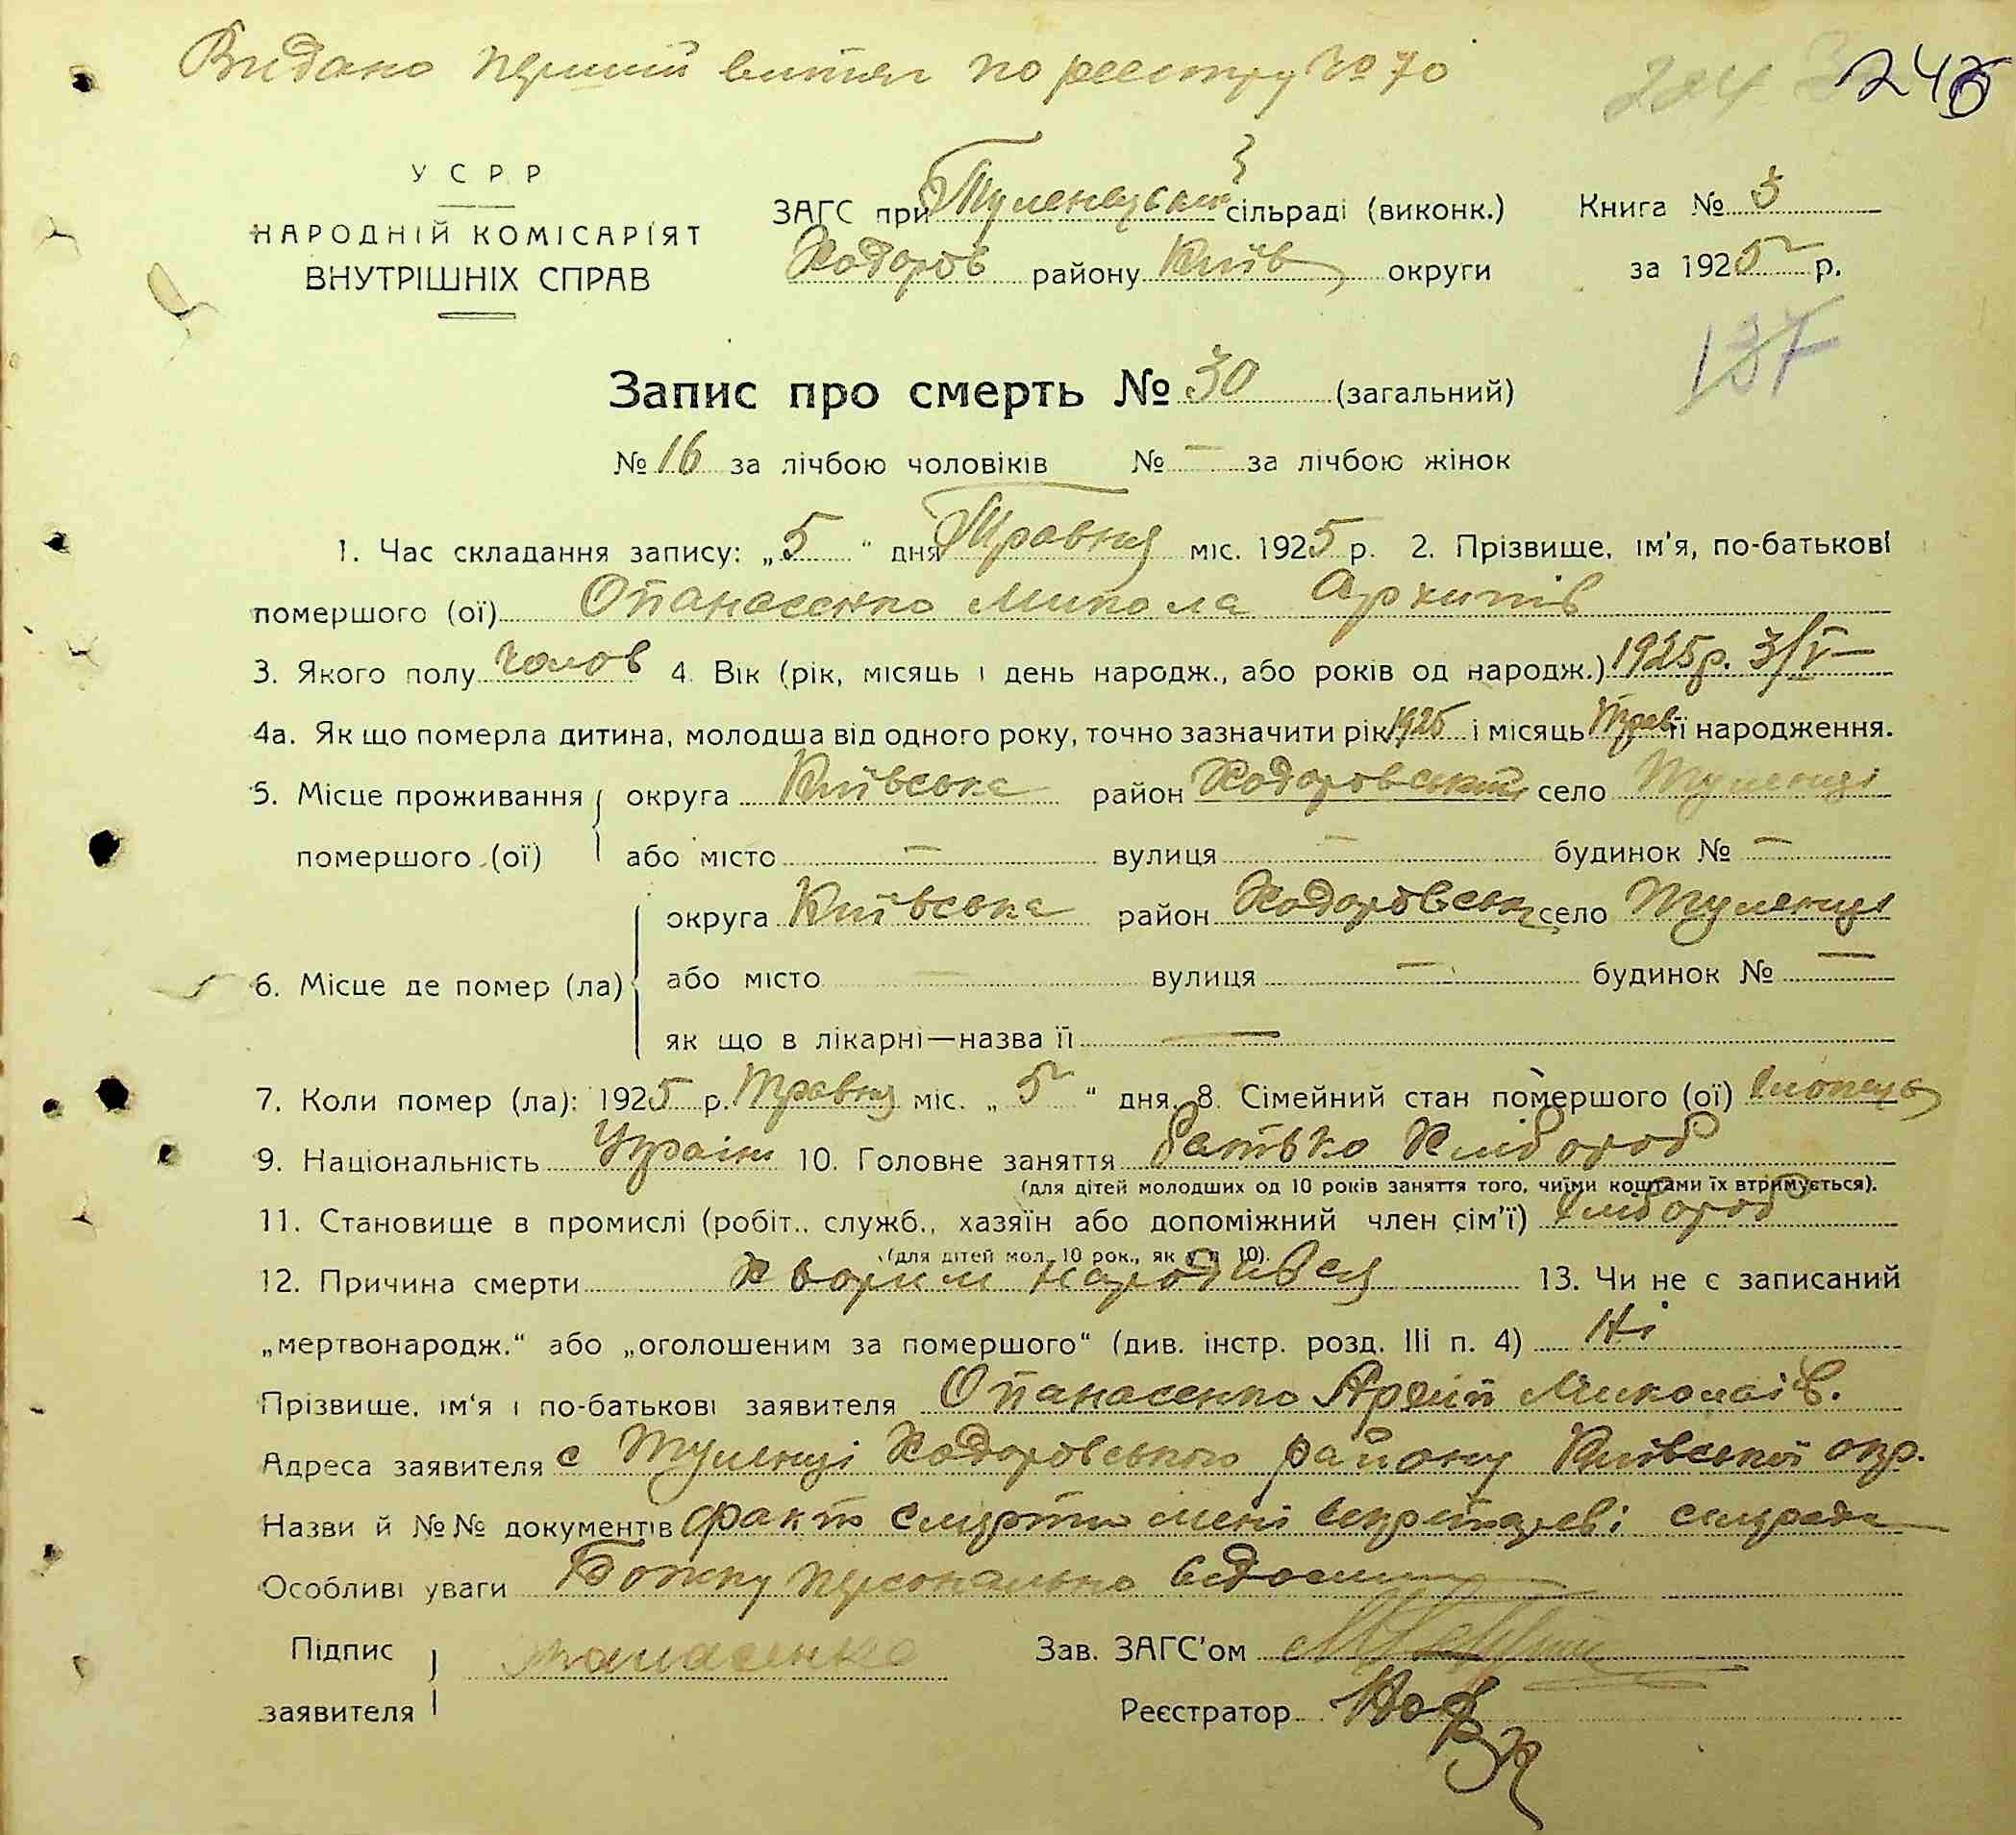 Видано перший витяг по реєстру № 70
204 3 246
У С Р Р
НАРОДНІЙ КОМІСАРІЯТ
ВНУТРІШНІХ СПРАВ
ЗАГС при Туленецькій сільраді (виконк.)
Ходоров району Київ округи
Книга № 3
за 1925 р.
137
Запис про смерть № 30 (загальний)
№ 16 за лічбою чоловіків № — за лічбою жінок
1. Час складання запису: „5" дня Травня міс. 1925 р. 2. Прізвище, ім'я, по-батькові
помершого (ої) Опанасенко Микола Архипів
3. Якого полу чолов 4. Вік (рік, місяць і день народж., або років од народж.) 1925р. 3/V—
4а. Як що померла дитина, молодша від одного року, точно зазначити рік 1925 і місяць Трав її народження.
5. Місце проживання округа Київська район Ходоровський село Тулинці
помершого (ої) або місто — вулиця — будинок № —
округа Київська район Ходоровськ село Тулинці
6. Місце де помер (ла) або місто — вулиця — будинок № —
як що в лікарні—назва її —
7. Коли помер (ла): 1925 р. Травня міс. „5" дня. 8. Сімейний стан помершого (ої) хлопець
9. Національність Україн 10. Головне заняття батько Хлібороб
(для дітей молодших од 10 років заняття того, чиїми коштами їх втримується).
11. Становище в промислі (робіт., служб., хазяїн або допоміжний член сім'ї) Хлібороб
(для дітей мол. 10 рок., як у п 10).
12. Причина смерти Хворим народився 13. Чи не є записаний
„мертвонародж." або „оголошеним за помершого" (див. інстр. розд. ІІІ п. 4) Ні
Прізвище, ім'я і по-батькові заявителя Опанасенко Архип Миколаїв.
Адреса заявителя с Тулинці Ходоровського району Київської окр.
Назви й №№ документів факт смерти мені секретареві сілради
Особливі уваги персонально відомий
Підпис
заявителя Опанасенко
Зав. ЗАГС'ом
Реєстратор